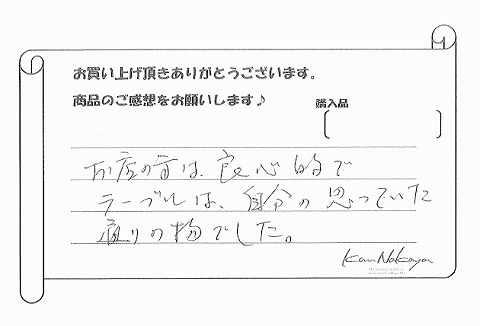 お買い上げ頂きありがとうございます。
商品のご感想をお願いします♪
購入品
お店の方は、良心的で
テーブルは、自分の思っていた
通りの物でした。